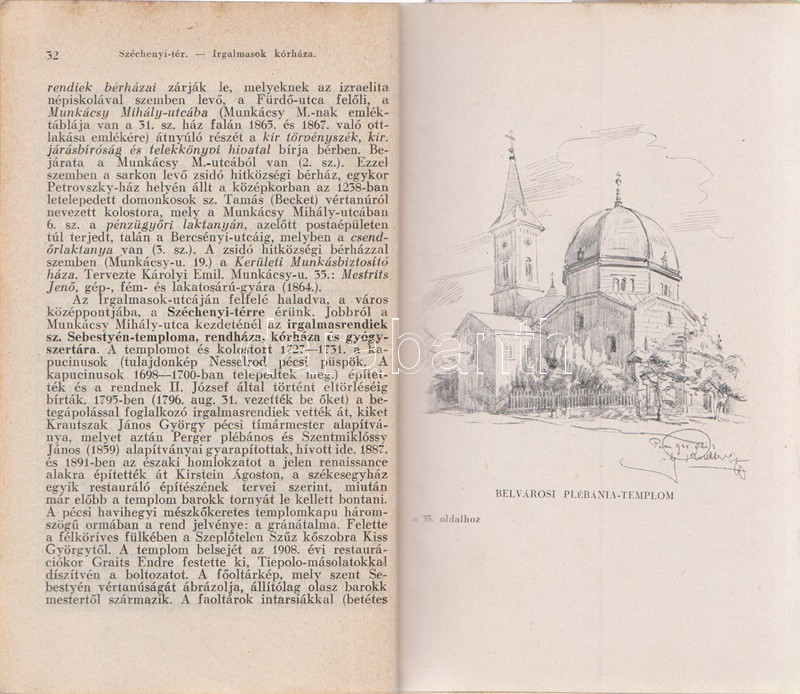 32
Széchenyi-tér. — Irgalmasok kórháza.
rendiek bérházai zárják le, melyeknek az izraelita
népiskolával szemben levő, a Fürdő-utca felőli, a
Munkácsy Mihály-utcába (Munkácsy M.-nak emlék-
táblája van a 31. sz. ház falán 1865. és 1867. való ott-
lakása emlékére) átnyúló részét a kir törvényszék, kir.
járásbíróság és telekkönyvi hivatal bírja bérben. Be-
járata a Munkácsy M.-utcából van (2. sz.). Ezzel
szemben a sarkon levő zsidó hitközségi bérház, egykor
Petrovszky-ház helyén állt a középkorban az 1238-ban
letelepedett domonkosok sz. Tamás (Becket) vértanúról
nevezett kolostora, mely a Munkácsy Mihály-utcában
6. sz. a pénzügyőri laktanyán, azelőtt postaépületen
túl terjedt, talán a Bercsényi-utcáig, melyben a csend-
őrlaktanya van (3. sz.). A zsidó hitközségi bérházzal
szemben (Munkácsy-u. 19.) a Kerületi Munkásbiztosító
háza. Tervezte Károlyi Emil. Munkácsy-u. 35.: Mestrits
Jenő, gép-, fém- és lakatosárú-gyára (1864.).
Az Irgalmasok-utcáján felfelé haladva, a város
középpontjába, a Széchenyi-térre érünk. Jobbról a
Munkácsy Mihály-utca kezdeténél az irgalmasrendiek
sz. Sebestyén-temploma, rendháza, kórháza és gyógy-
szertára. A templomot és kolostort 1727—1731. a ka-
pucinusok (tulajdonkép Nesselrod pécsi püspök. A
kapucinusok 1698—1700-ban telepedtek meg.) építet-
ték és a rendnek II. József által történt eltörléséig
bírták. 1795-ben (1796. aug. 31. vezették be őket) a be-
tegápolással foglalkozó irgalmasrendiek vették át, kiket
Krautszak János György pécsi tímármester alapítvá-
nya, melyet aztán Perger plébános és Szentmiklóssy
János (1859) alapítványai gyarapítottak, hívott ide. 1887.
és 1891-ben az északi homlokzatot a jelen renaissance
alakra építették át Kirstein Ágoston, a székesegyház
egyik restauráló építészének tervei szerint, miután
már előbb a templom barokk tornyát le kellett bontani.
A pécsi havihegyi mészkőkeretes templomkapu három-
szögű ormában a rend jelvénye: a gránátalma. Felette
a félköríves fülkében a Szeplőtelen Szűz kőszobra Kiss
Györgytől. A templom belsejét az 1908. évi restaurá-
ciókor Graits Endre festette ki, Tiepolo-másolatokkal
díszítvén a boltozatot. A főoltárkép, mely szent Se-
bestyén vértanúságát ábrázolja, állítólag olasz barokk
mestertől származik. A faoltárok intarsiákkal (betétes
BELVÁROSI PLÉBÁNIA-TEMPLOM
33. oldalhoz